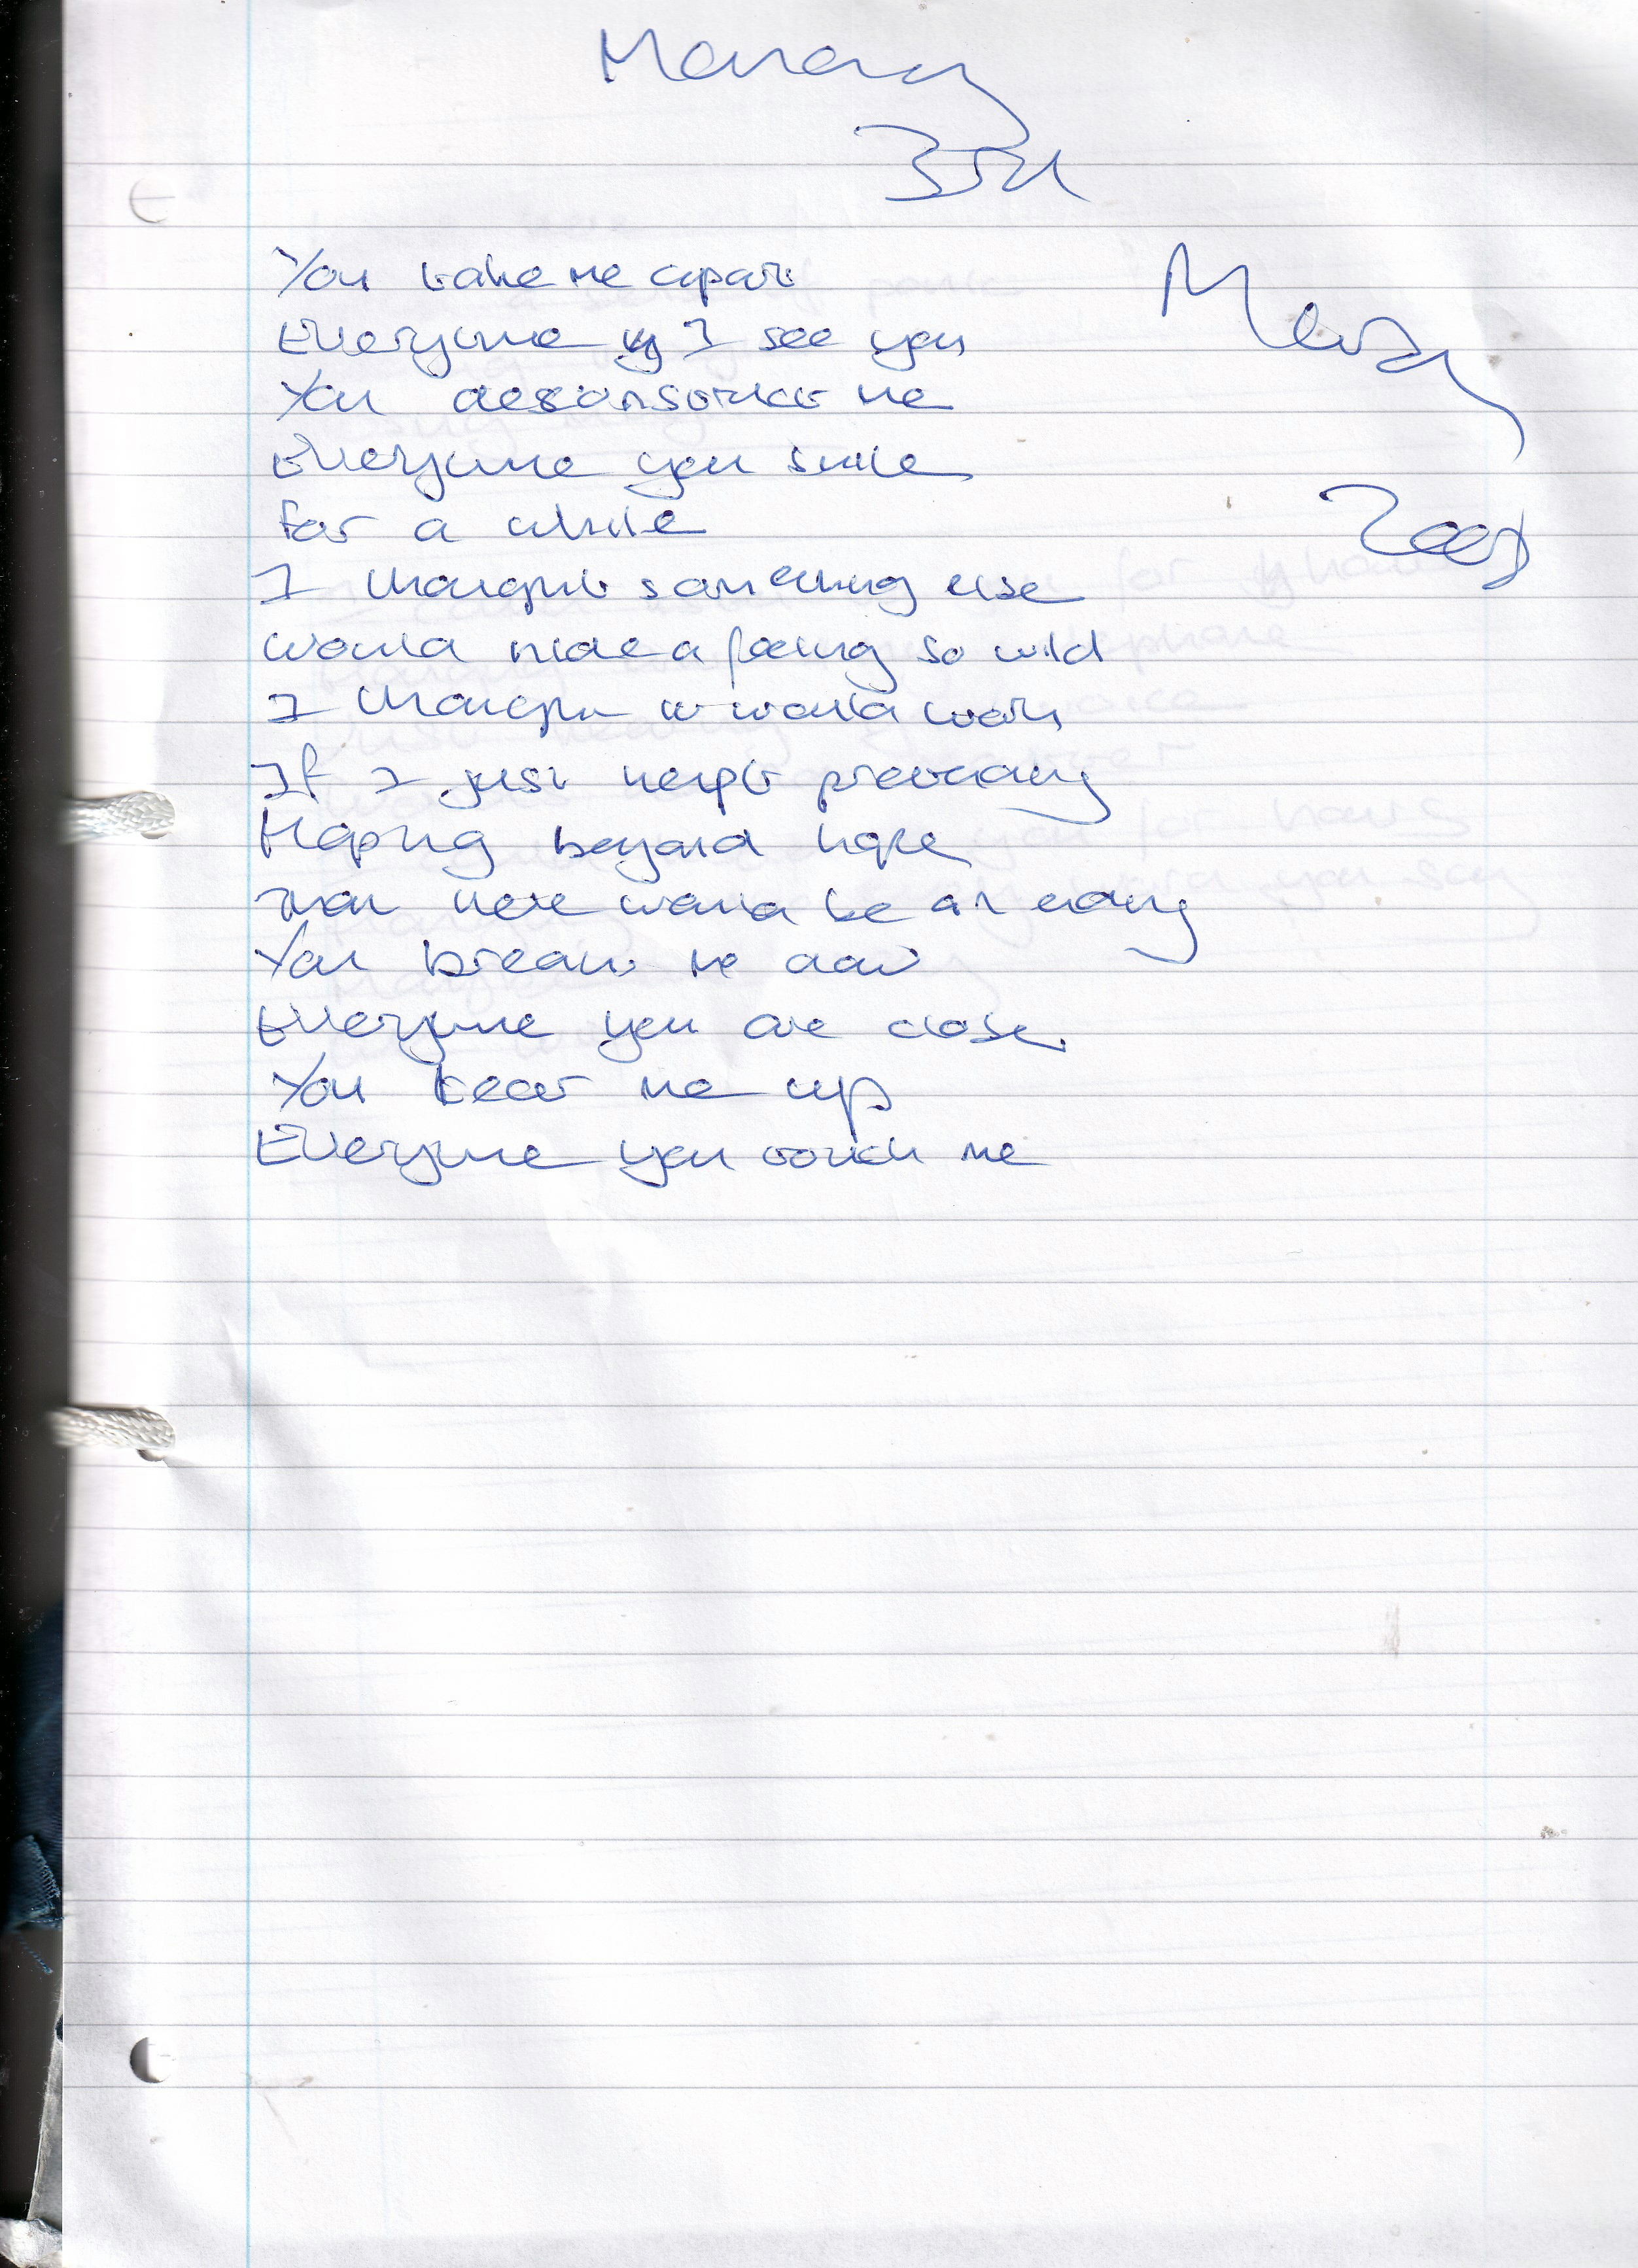 Monday
3rd
March
2008
You take me apart
Everytime I see you
You deconstruct me
Everytime you smile
For a while
I thought something else
would hide a feeling so wild
I thought it would work
If I just kept pretending
Hoping beyond hope
That there would be an ending
You break me down
Everytime you are close
You tear me up
Everytime you touch me